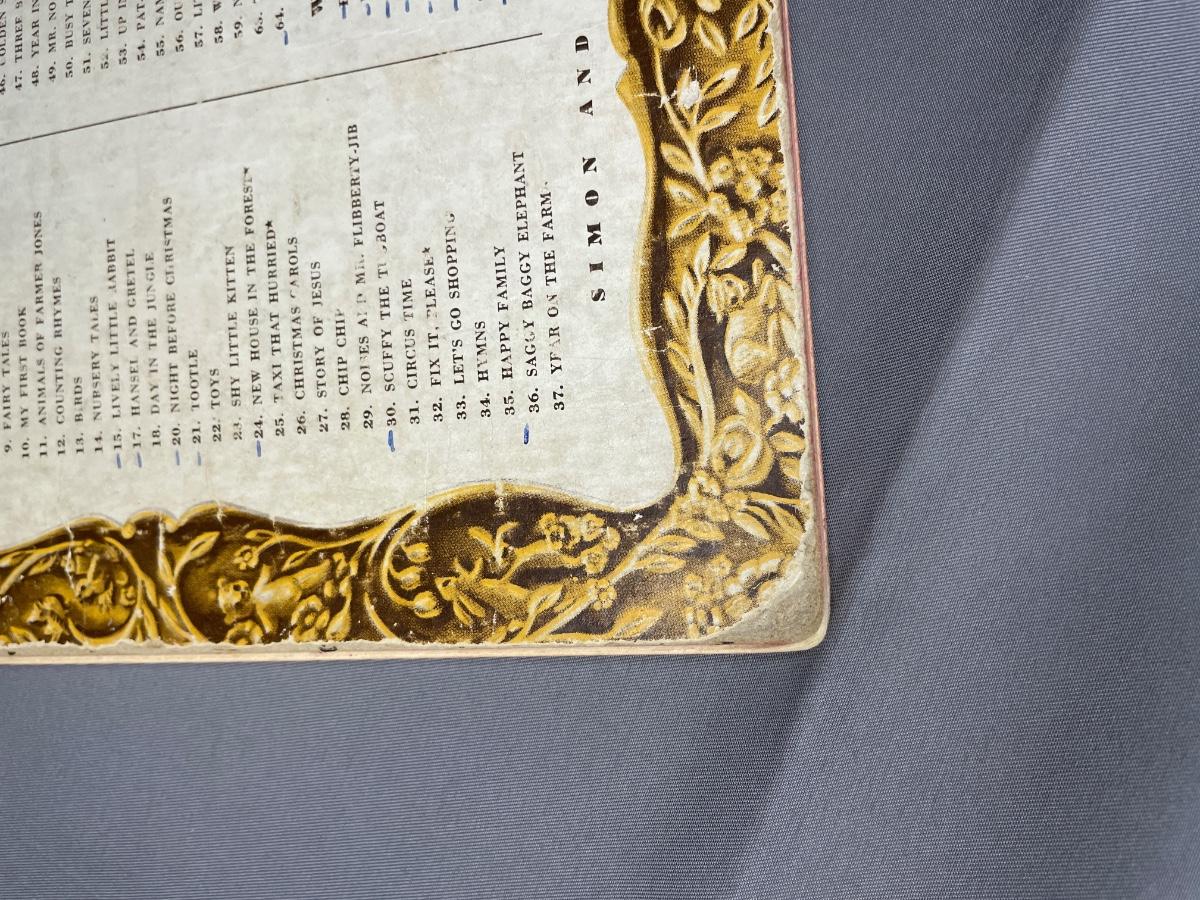 9. FAIRY TALES
10. MY FIRST BOOK
11. ANIMALS OF FARMER JONES
12. COUNTING RHYMES
13. BIRDS
14. NURSERY TALES
15. LIVELY LITTLE RABBIT
17. HANSEL AND GRETEL
18. DAY IN THE JUNGLE
20. NIGHT BEFORE CHRISTMAS
21. TOOTLE
22. TOYS
23. SHY LITTLE KITTEN
24. NEW HOUSE IN THE FOREST*
25. TAXI THAT HURRIED★
26. CHRISTMAS CAROLS
27. STORY OF JESUS
28. CHIP CHIP
29. NOISES AND MR. FLIBBERTY-JIB
30. SCUFFY THE TUGBOAT
31. CIRCUS TIME
32. FIX IT, PLEASE★
33. LET'S GO SHOPPING
34. HYMNS
35. HAPPY FAMILY
36. SAGGY BAGGY ELEPHANT
37. YEAR ON THE FARM
46. GOLDEN
47. THREE
48. YEAR IN
49. MR. NO
50. BUSY
51. SEVEN
52. LITTL
53. UP I
54. PAT-
55. NAN
56. OU
57. LI
58. W
59. N
63.
64.
SIMON AND